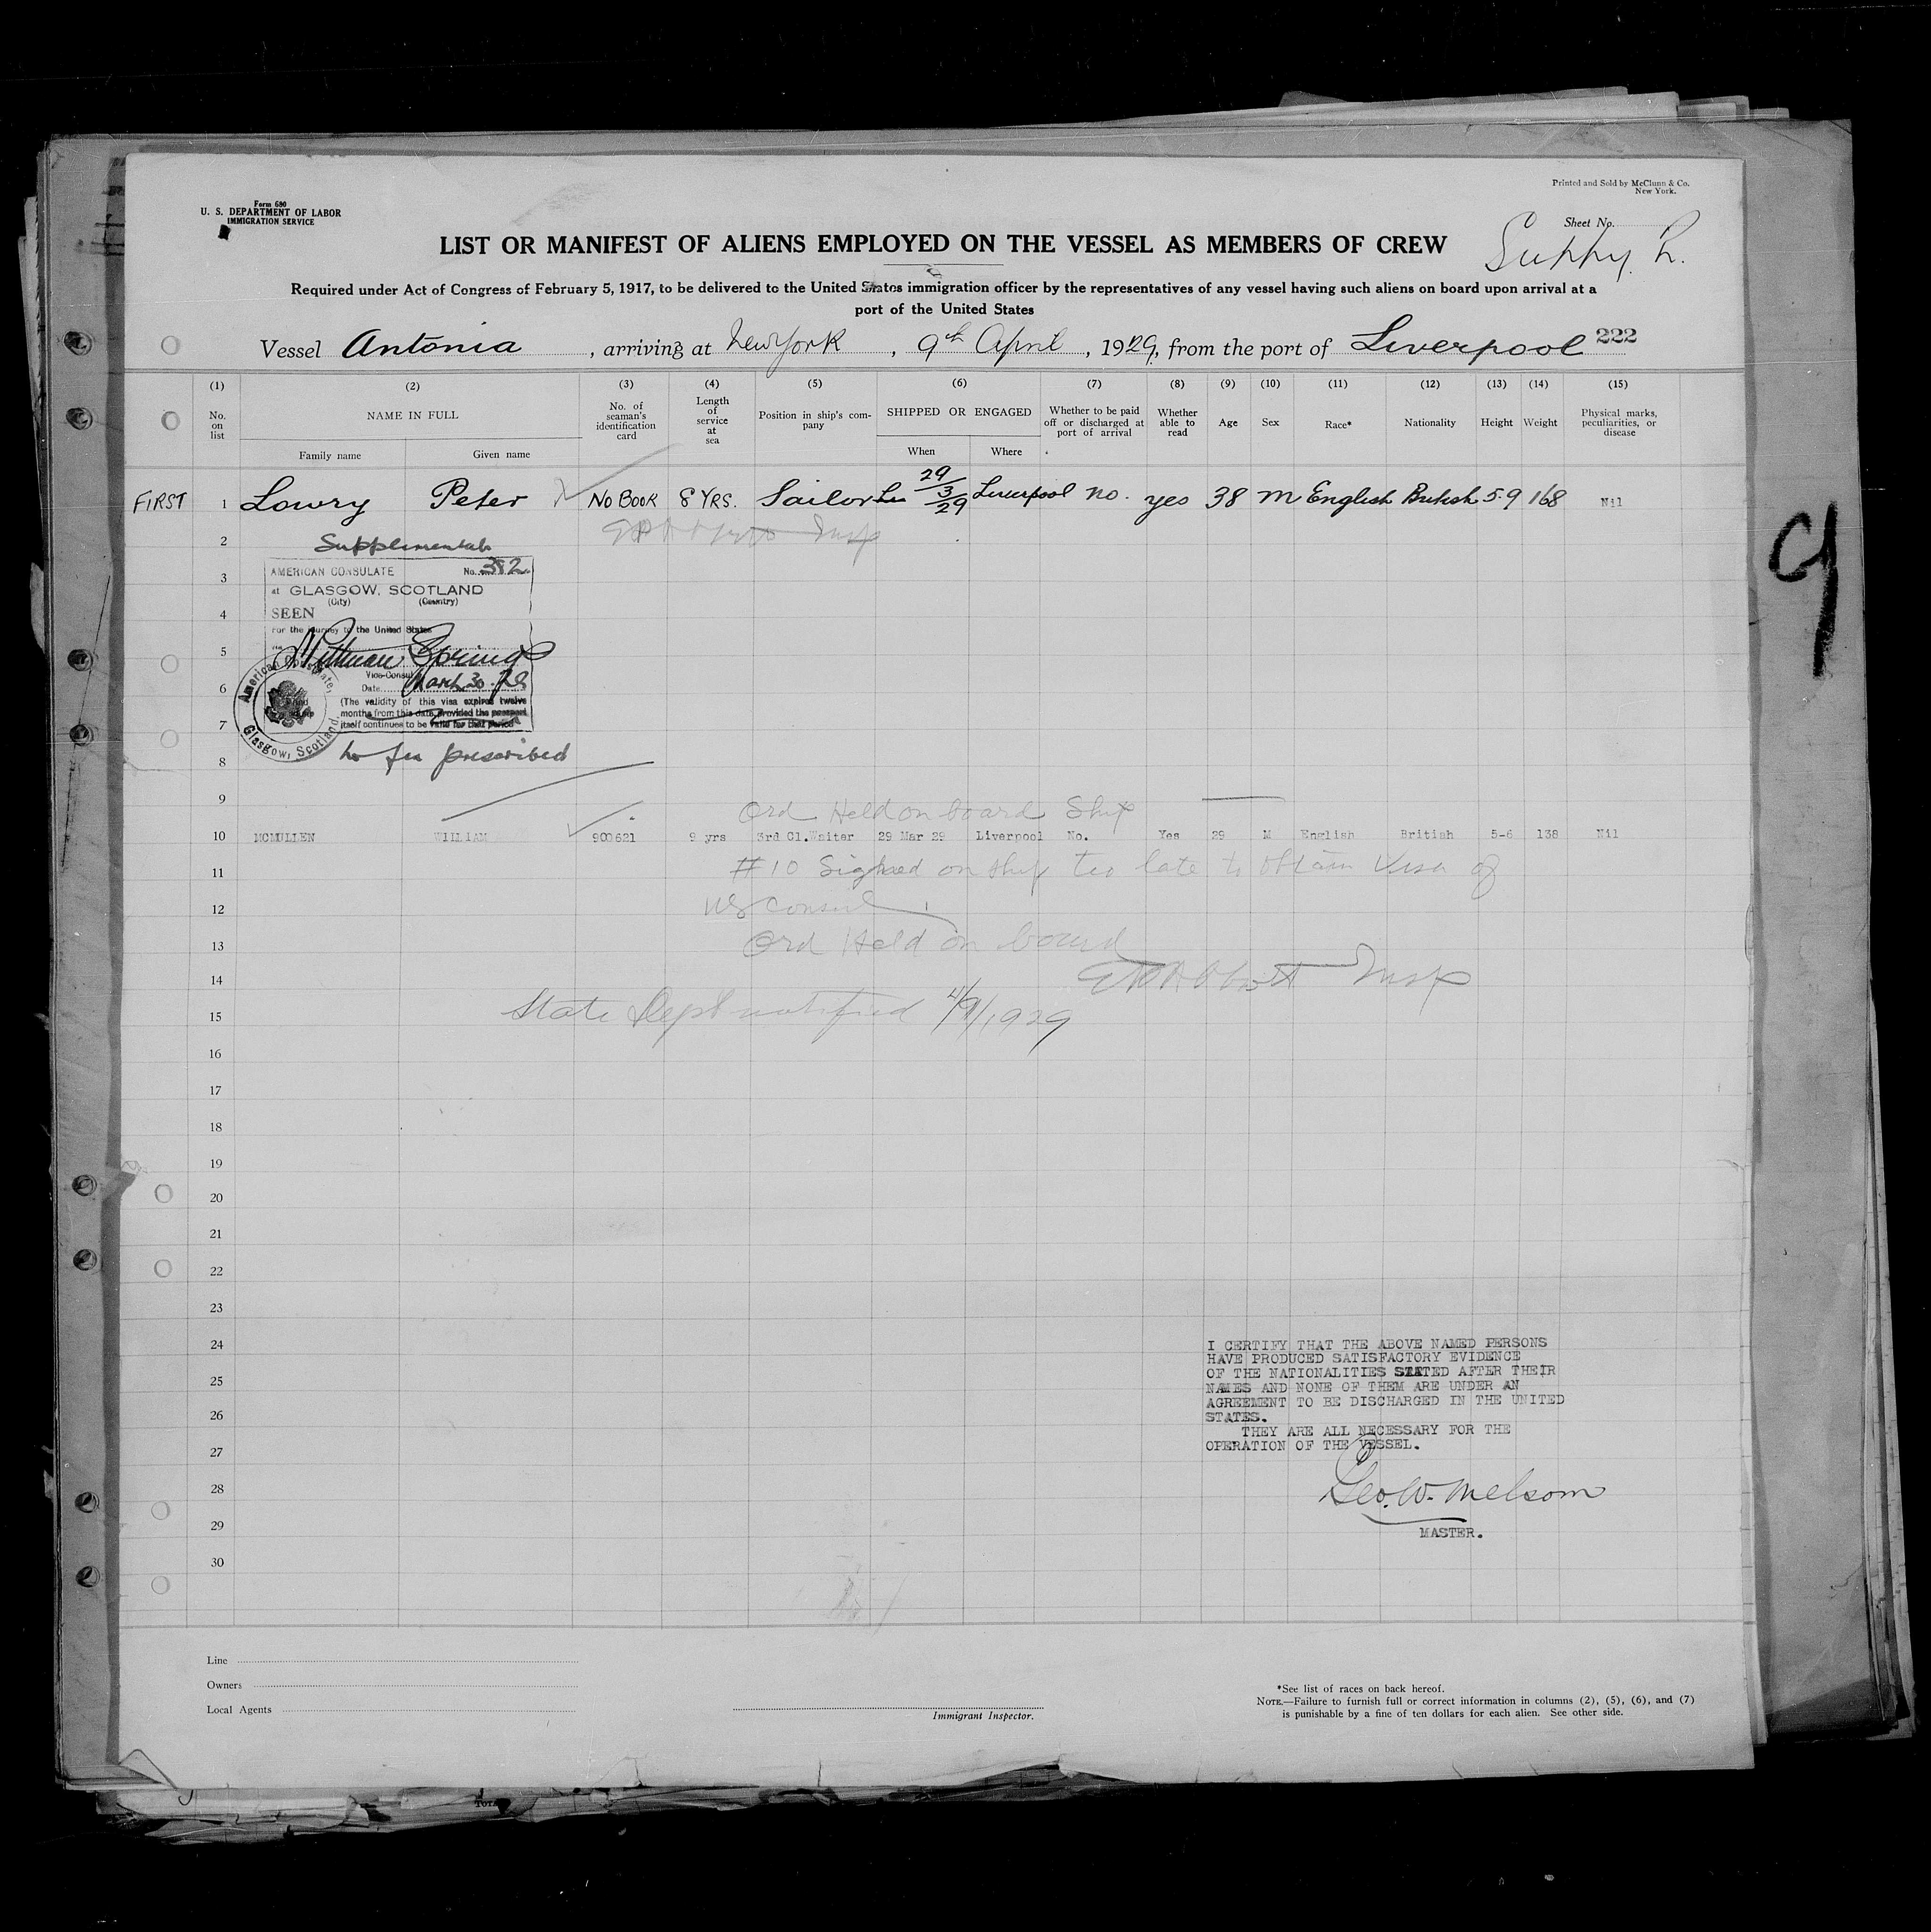 Form 680
U. S. DEPARTMENT OF LABOR
IMMIGRATION SERVICE
Printed and Sold by McClunn & Co.
New York.
Sheet No.
LIST OR MANIFEST OF ALIENS EMPLOYED ON THE VESSEL AS MEMBERS OF CREW
Required under Act of Congress of February 5, 1917, to be delivered to the United States immigration officer by the representatives of any vessel having such aliens on board upon arrival at a
port of the United States
Vessel Antonia, arriving at New York, 9th April, 1929, from the port of Liverpool 222
(1) (2) (3) (4) (5) (6) (7) (8) (9) (10) (11) (12) (13) (14) (15)
No. on list NAME IN FULL No. of seaman's identification card Length of service at sea Position in ship's company SHIPPED OR ENGAGED Whether to be paid off or discharged at port of arrival Whether able to read Age Sex Race* Nationality Height Weight Physical marks, peculiarities, or disease
Family name Given name When Where
FIRST 1 Lowry Peter No Book 8 YRS. Sailor 29/3/29 Liverpool no. yes 38 M English British 5.9 168 Nil
2 Insp
Supplimental
3 AMERICAN CONSULATE No. 382
at GLASGOW, SCOTLAND
(City) (Country)
4 SEEN
For the journey to the United States
5
Vice-Consul
6 Date March 30
(The validity of this visa expires twelve
months from this date provided the passport
7 itself continues to be valid for that period
American Consulate, Glasgow, Scotland
8 no fee prescribed
9 Ord Held on board Ship
10 MCMULLEN WILLIAM 900621 9 yrs 3rd Cl.Waiter 29 Mar 29 Liverpool No. Yes 29 M English British 5-6 138 Nil
11 #10 Signed on ship too late to obtain Visa of
12 US Consul
13 Ord Held on board
14 Insp
15 State Dept notified 4/9/1929
16
17
18
19
20
21
22
23
24 I CERTIFY THAT THE ABOVE NAMED PERSONS
HAVE PRODUCED SATISFACTORY EVIDENCE
OF THE NATIONALITIES STATED AFTER THEIR
25 NAMES AND NONE OF THEM ARE UNDER AN
AGREEMENT TO BE DISCHARGED IN THE UNITED
26 STATES.
THEY ARE ALL NECESSARY FOR THE
27 OPERATION OF THE VESSEL.
28 Geo. W. Melsom
29 MASTER.
30
Line
Owners
Local Agents
Immigrant Inspector.
*See list of races on back hereof.
NOTE.—Failure to furnish full or correct information in columns (2), (5), (6), and (7)
is punishable by a fine of ten dollars for each alien. See other side.
9